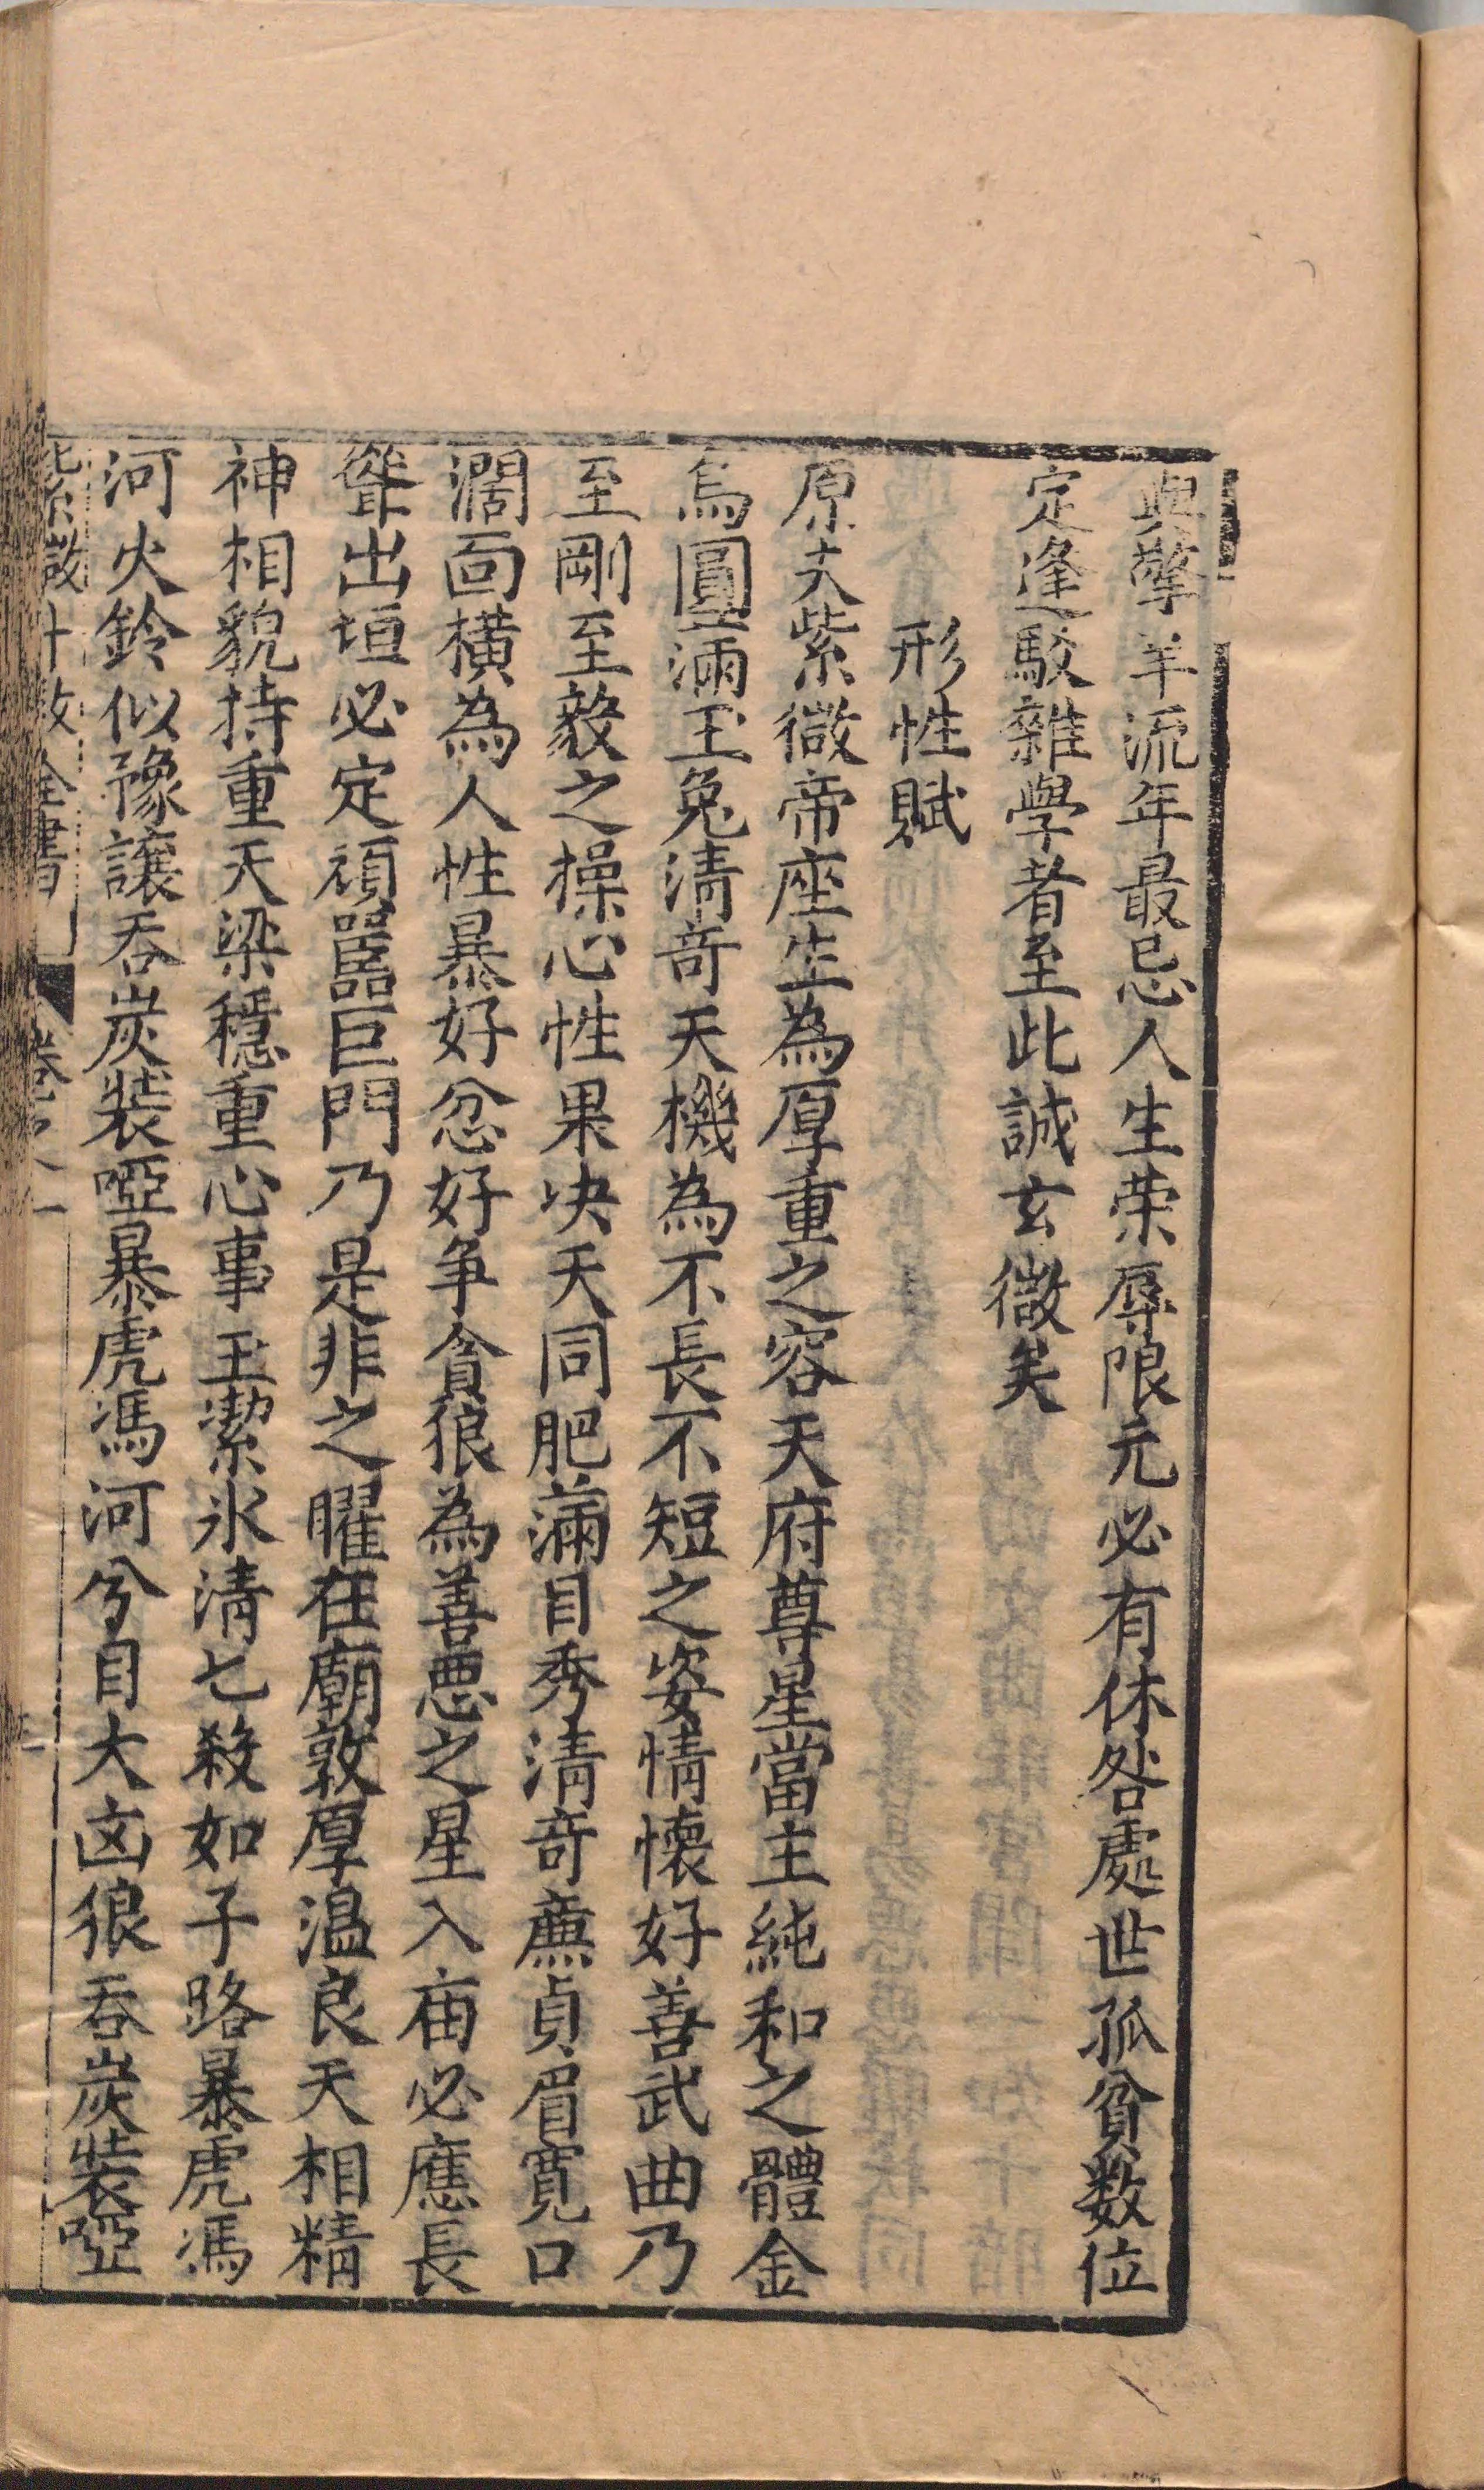 與擎羊流年最忌人生荣辱限元必有休咎處世孤貧数位
定逢駁雜學者至此誠玄微矣
形性賦
原夫紫微帝座生為厚重之容天府尊星當主純和之體金
烏圓滿玉兔清奇天機為不長不短之姿情懷好善武曲乃
至剛至毅之操心性果决天同肥滿目秀清奇廉貞眉寬口
濶面横為人性暴好忿好争貪狼為善惡之星入庙必應長
聳出垣必定頑嚚巨門乃是非之曜在廟敦厚温良天相精
神相貌持重天梁穩重心事玉潔氷清七殺如子路暴虎馮
河火鈴似豫讓吞炭装啞暴虎馮河兮目大凶狼吞炭装啞
紫微斗数全書 卷之一